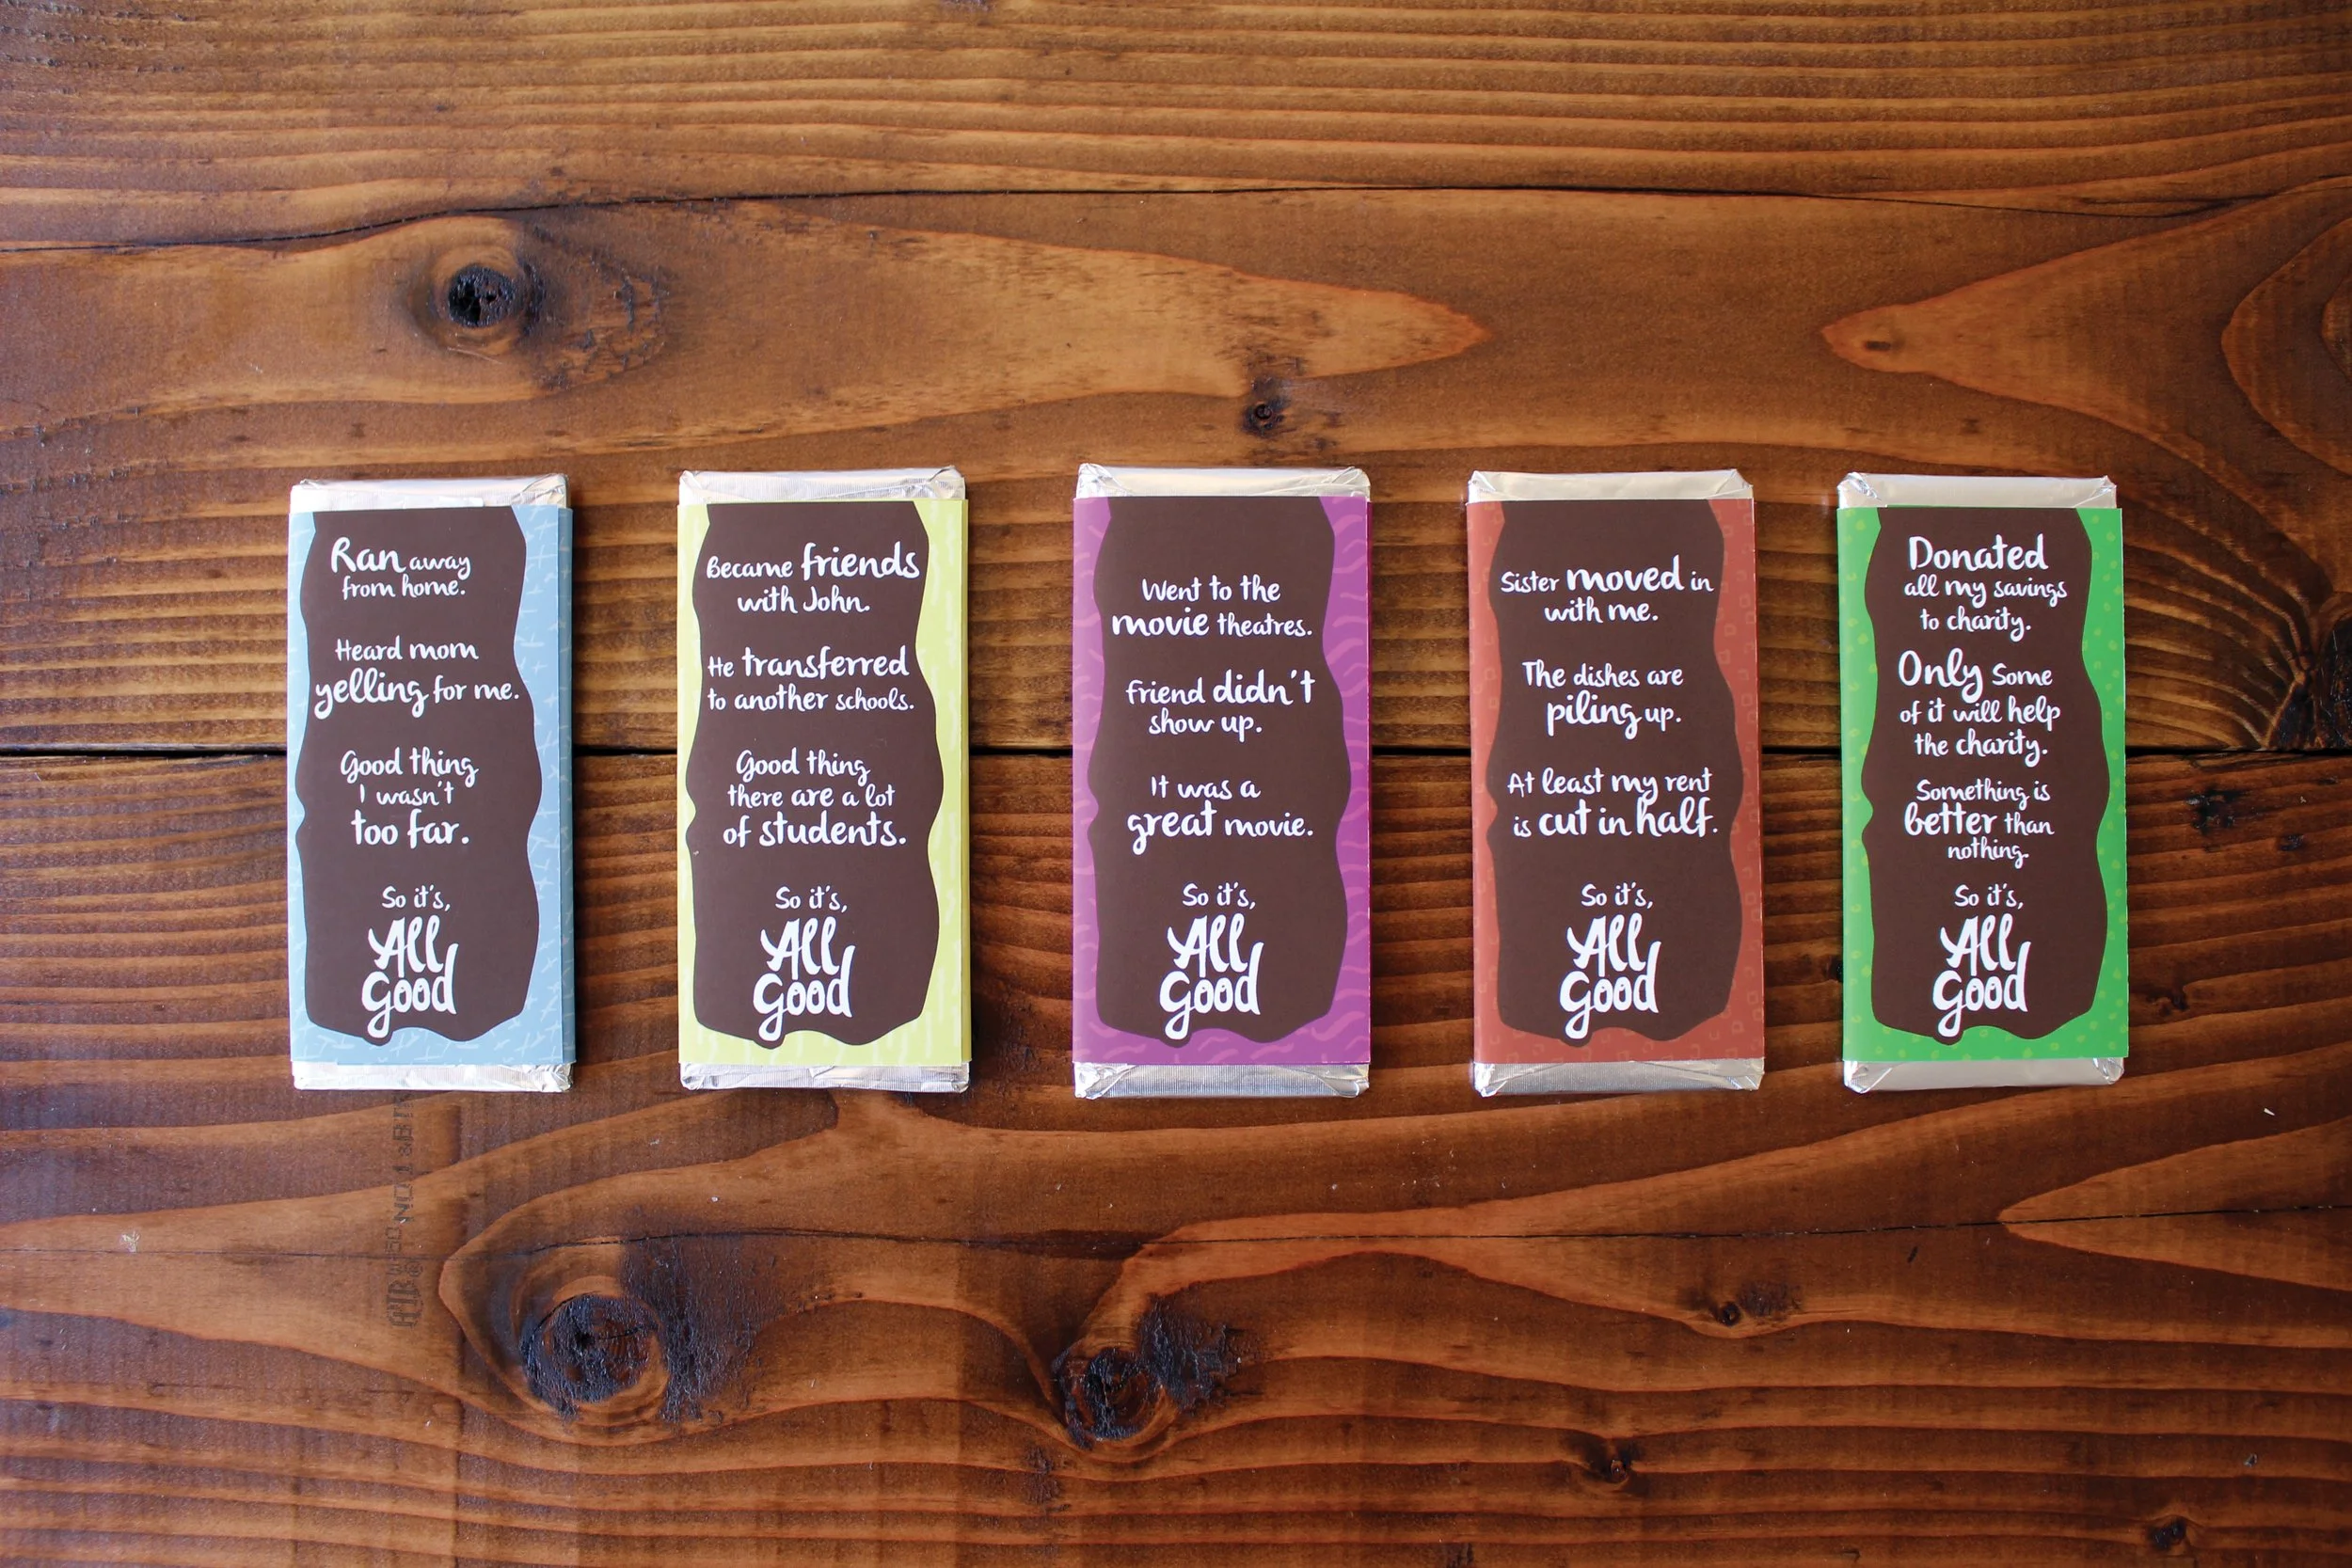 Ran away
from home.
Heard mom
yelling for me.
Good thing
I wasn't
too far.
So it's,
All
Good
Became friends
with John.
He transferred
to another schools.
Good thing
there are a lot
of students.
So it's,
All
Good
Went to the
movie theatres.
Friend didn't
show up.
It was a
great movie.
So it's,
All
Good
Sister moved in
with me.
The dishes are
piling up.
At least my rent
is cut in half.
So it's,
All
Good
Donated
all my savings
to charity.
Only Some
of it will help
the charity.
Something is
better than
nothing.
So it's,
All
Good